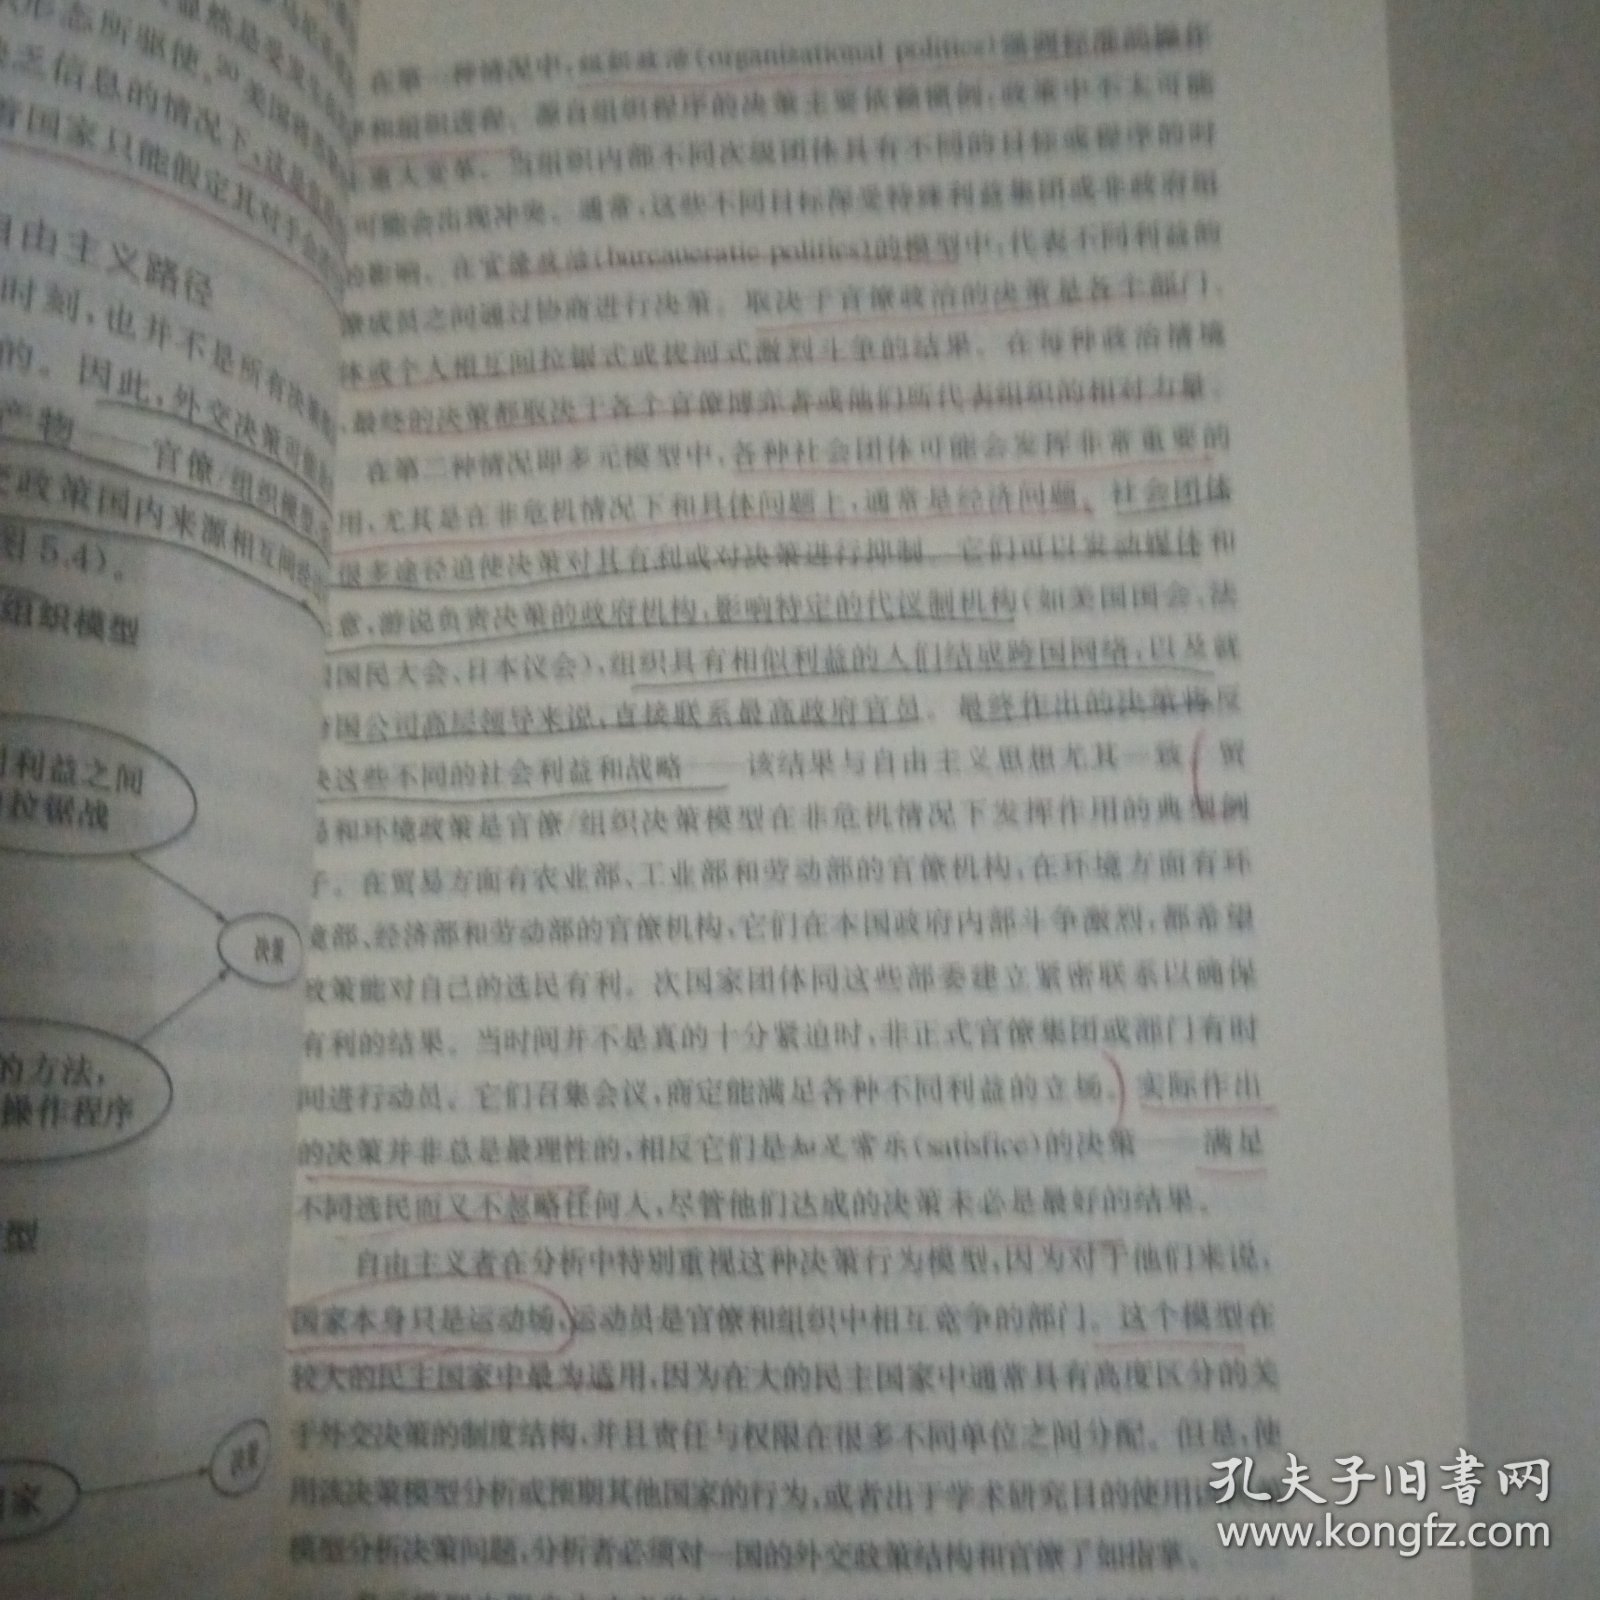 形态所驱使
缺乏信息的情况下，这是
着国家只能假定其对手会
自由主义路径
时刻，也并不是所有决策
的。因此，外交决策可能
产物——官僚/组织模型
政策国内来源相互
图5.4)。
组织模型
利益之间
拉锯战
决策
的方法，
操作程序
型
国家
决策
在第一种情况中，组织政治(organizational politics)强调标准的操作
和组织进程。源自组织程序的决策主要依赖惯例，政策中不太可能
重大变革。当组织内部不同次级团体具有不同的目标或程序的时
可能会出现冲突。通常，这些不同目标深受特殊利益集团或非政府组
的影响。在官僚政治(bureaucratic politics)的模型中，代表不同利益的
策成员之间通过协商进行决策。取决于官僚政治的决策是各主部门、
体或个人相互间拉锯式或拔河式激烈斗争的结果。在每种政治情境
，最终的决策都取决于各个官僚博弈者或他们所代表组织的相对力量。
在第二种情况即多元模型中，各种社会团体可能会发挥非常重要的
用，尤其是在非危机情况下和具体问题上，通常是经济问题。社会团体
很多途径迫使决策对其有利或对决策进行抑制。它们可以发动媒体和
意，游说负责决策的政府机构，影响特定的代议制机构(如美国国会、法
国国民大会、日本议会)，组织具有相似利益的人们结成跨国网络，以及就
国公司高层领导来说，直接联系最高政府官员。最终作出的决策将反
映这些不同的社会利益和战略——该结果与自由主义思想尤其一致。贸
易和环境政策是官僚/组织决策模型在非危机情况下发挥作用的典型例
子。在贸易方面有农业部、工业部和劳动部的官僚机构，在环境方面有环
境部、经济部和劳动部的官僚机构，它们在本国政府内部斗争激烈，都希望
政策能对自己的选民有利。次国家团体同这些部委建立紧密联系以确保
有利的结果。当时间并不是真的十分紧迫时，非正式官僚集团或部门有时
间进行动员。它们召集会议，商定能满足各种不同利益的立场。实际作出
的决策并非总是最理性的，相反它们是知足常乐(satisfice)的决策——满足
不同选民而又不忽略任何人，尽管他们达成的决策未必是最好的结果。
自由主义者在分析中特别重视这种决策行为模型，因为对于他们来说，
国家本身只是运动场，运动员是官僚和组织中相互竞争的部门。这个模型在
较大的民主国家中最为适用，因为在大的民主国家中通常具有高度区分的关
于外交决策的制度结构，并且责任与权限在很多不同单位之间分配。但是，使
用该决策模型分析或预期其他国家的行为，或者出于学术研究目的使用
模型分析决策问题，分析者必须对一国的外交政策结构和官僚了如指掌。
孔夫子旧书网
www.kongfz.com